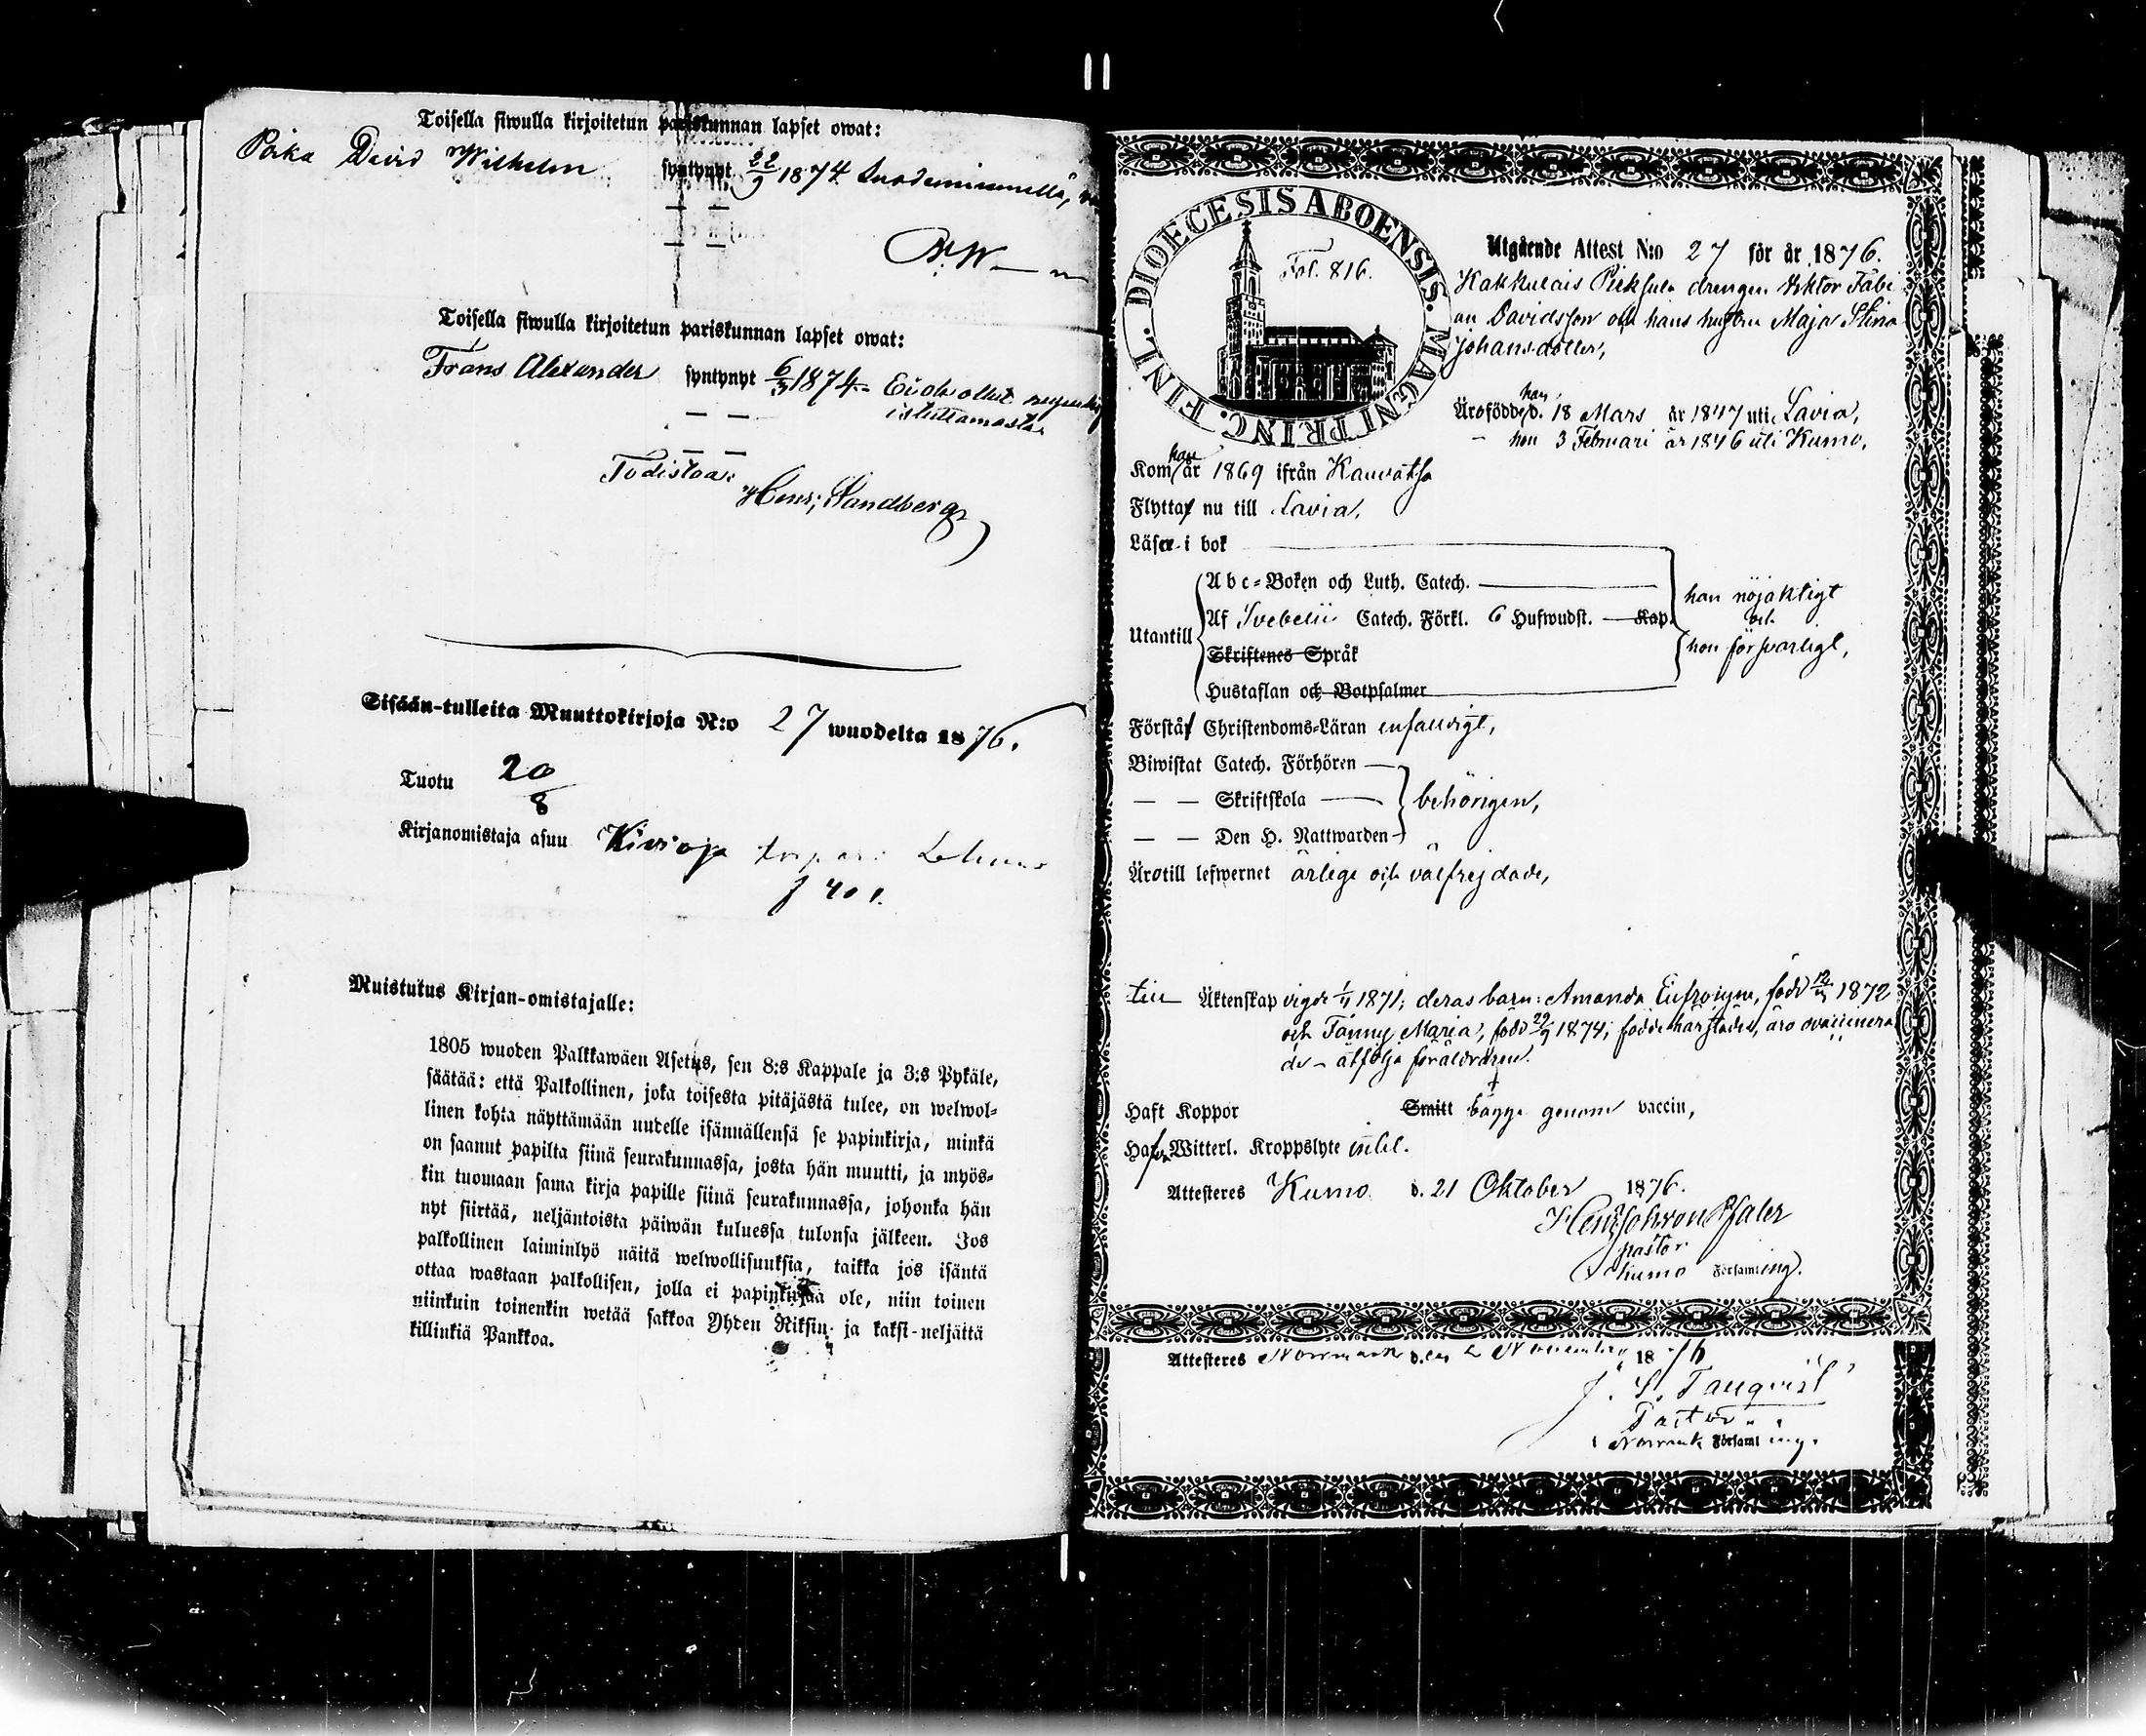 Toisella siwulla kirjoitetun pariskunnan lapset owat:
Poika David Wilhelm syntynyt 22/9 1874
Toisella siwulla kirjoitetun pariskunnan lapset owat:
Frans Alexander syntynyt 6/3 1874 Ei ole ollut
Todistaa:
Henr. Sandberg
Sisään-tulleita Muuttokirjoja N:o 27 wuodelta 1876.
Tuotu 20/8
Kirjanomistaja asuu Kivioja
f 401.
Muistutus Kirjan-omistajalle:
1805 wuoden Palkkawäen Asetus, sen 8:s Kappale ja 3:s Pykäle,
säätää: että Palkollinen, joka toisesta pitäjästä tulee, on welwol-
linen kohta näyttämään uudelle isännällensä se papinkirja, minkä
on saanut papilta siinä seurakunnassa, josta hän muutti, ja myös-
kin tuomaan sama kirja papille siinä seurakunnassa, johonka hän
nyt siirtää, neljäntoista päiwän kuluessa tulonsa jälkeen. Jos
palkollinen laiminlyö näitä welwollisuuksia, taikka jos isäntä
ottaa wastaan palkollisen, jolla ei papinkirjaa ole, niin toinen
niinkuin toinenkin wetää sakkoa Yhden Riksin ja kaksi-neljättä
killinkiä Pankkoa.
DIOECESIS ABOENSIS. MAGNI PRINC. FINL.
Fol. 816.
Utgående Attest N:o 27 för år 1876.
Kakkulais drengen Viktor Fabi
an Davidsson och hans hustru Maja Stina
Johansdotter,
Äro födde han d. 18 Mars år 1847 uti Lavia,
– hon 3 Februari år 1846 uti Kumo,
Kom han år 1869 ifrån Kauvatsa
Flytta nu till Lavia,
Läsa i bok
Abc-Boken och Luth. Catech.
Utantill
Af Svebelii Catech. Förkl. 6 Hufwudst. — Kap.
Skriftenes Språk
Hustaflan och Botpsalmer
han nöjaktigt
och
hon försvarligt,
Förstå Christendoms-Läran enfaldigt,
Biwistat Catech. Förhören
— — Skriftskola
— — Den H. Nattwarden
behörigen,
Äro till lefwernet ärlige och välfrejdade,
till Äktenskap vigde 1871; deras barn: Amanda Eufrosyne, född 1872
och Fanny Maria, född 1874; födde härstädes, äro ovaccinera
de – åtfölja föräldrarne.
Haft Koppor Smitt bägge genom vaccin,
Hafva Witterl. Kroppslyte intet.
Attesteres Kumo d. 21 Oktober 1876.
Henr. Joh. von Pfaler
pastor
i Kumo Församling.
Attesteres Norrmark den 2 November 1876
Pastor
i Norrmark Församling.